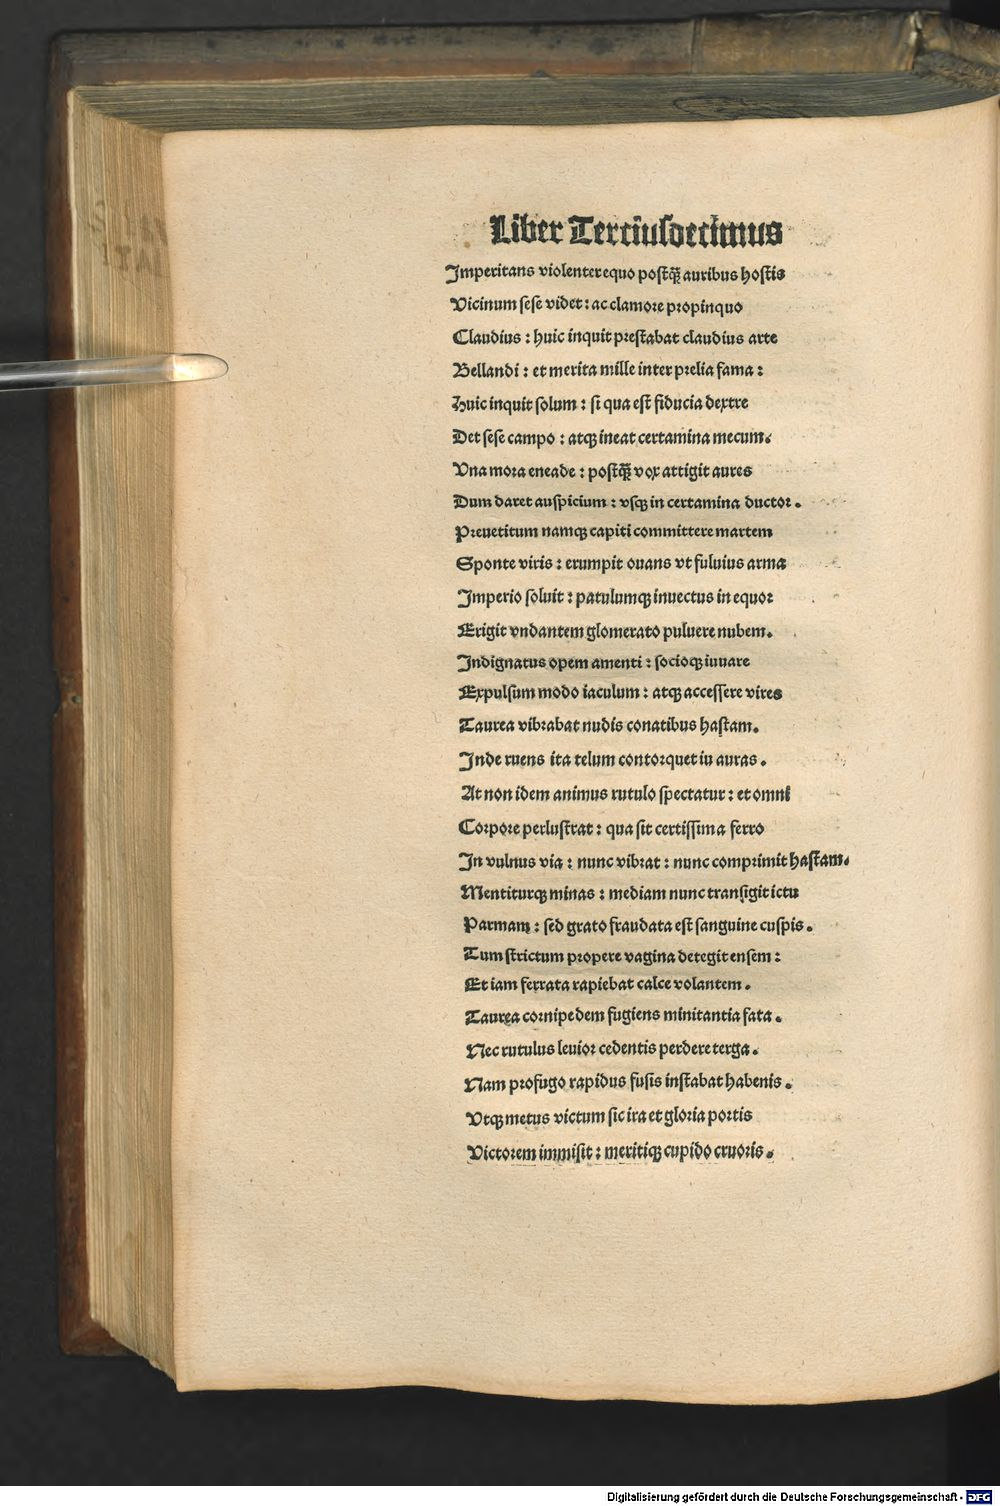 Liber Terciusdecimus
Imperitans violenter equo postq̃ȝ auribus hostis
Vicinum sese videt : ac clamore propinquo
Claudius : huic inquit prestabat claudius arte
Bellandi : et merita mille inter prelia fama :
Huic inquit solum : si qua est fiducia dextre
Det sese campo : atqȝ ineat certamina mecum.
Vna mora eneade : postq̃ȝ vox attigit aures
Dum daret auspicium : vsqȝ in certamina ductor.
Preuetitum namqȝ capiti committere martem
Sponte viris : erumpit ouans vt fuluius arma
Imperio soluit : patulumqȝ inuectus in equor
Erigit vndantem glomerato puluere nubem.
Indignatus opem amenti : socioqȝ iuuare
Expulsum modo iaculum : atqȝ accessere vires
Taurea vibrabat nudis conatibus hastam.
Inde ruens ita telum contorquet iu auras.
At non idem animus rutulo spectatur : et omni
Corpore perlustrat : qua sit certissima ferro
In vulnus via : nunc vibrat : nunc comprimit hastam.
Mentiturqȝ minas : mediam nunc transigit ictu
Parmam : sed grato fraudata est sanguine cuspis.
Tum strictum propere vagina detegit ensem :
Et iam ferrata rapiebat calce volantem.
Taurea cornipedem fugiens minitantia fata.
Nec rutulus leuior cedentis perdere terga.
Nam profugo rapidus fusis instabat habenis.
Vtqȝ metus victum sic ira et gloria portis
Victorem immisit : meritiqȝ cupido cruoris.
Digitalisierung gefördert durch die Deutsche Forschungsgemeinschaft - DFG